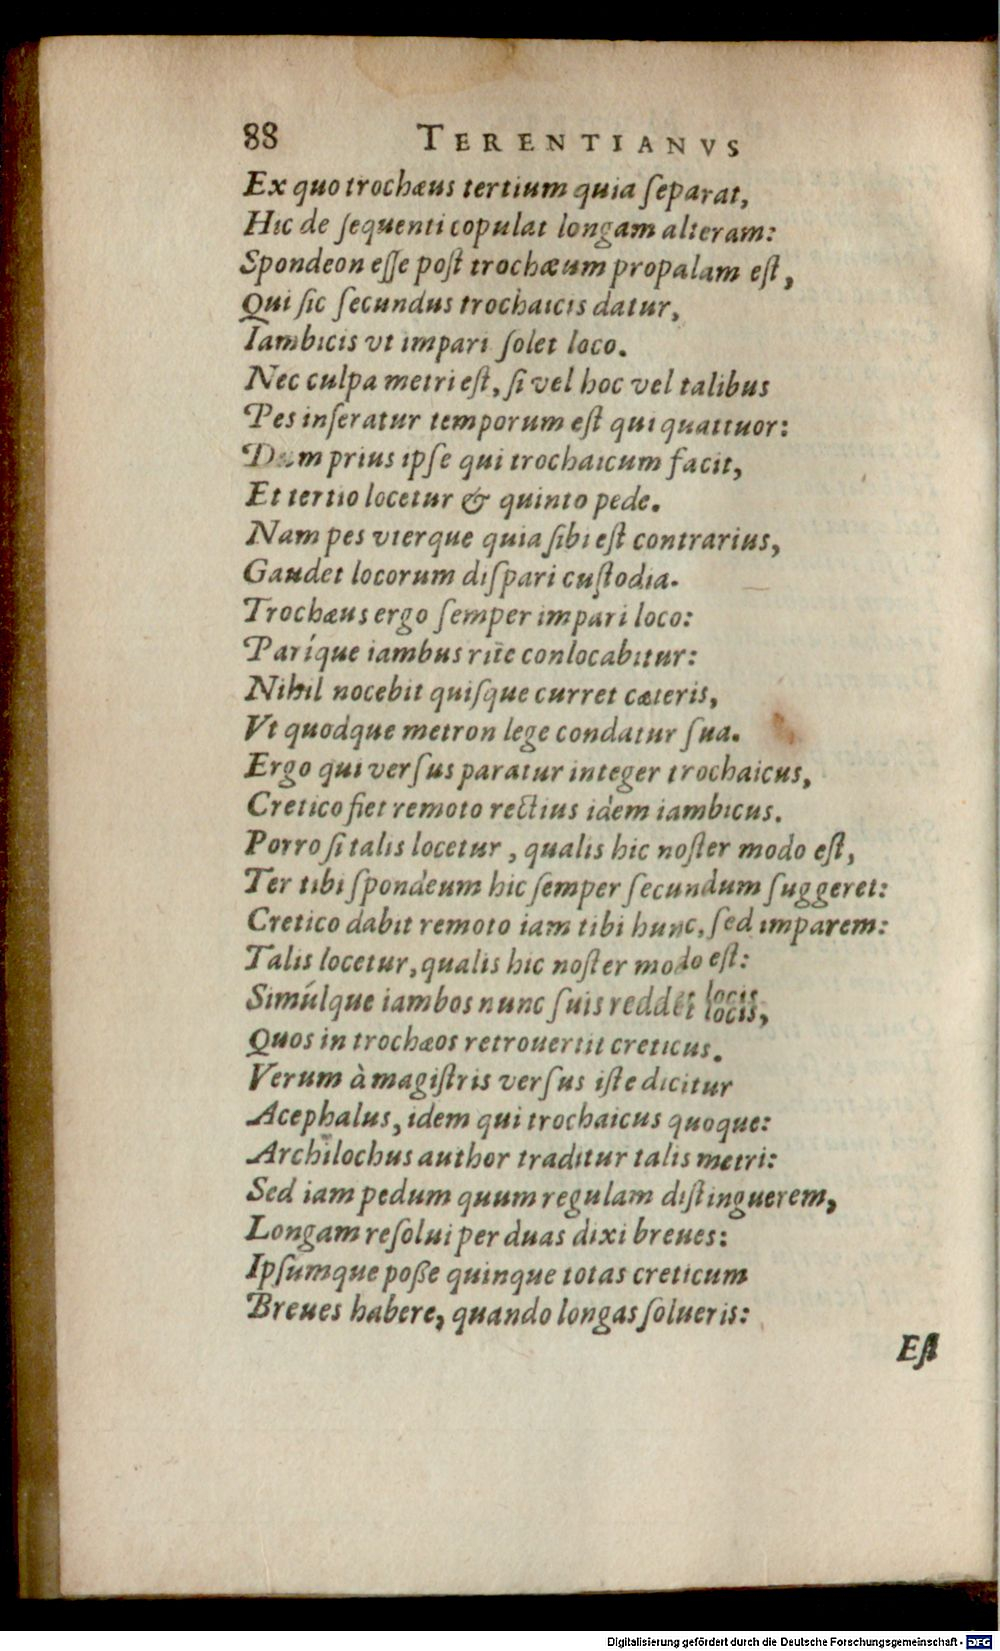 88 TERENTIANVS
Ex quo trochæus tertium quia ſeparat,
Hic de ſequenti copulat longam alteram:
Spondeon eſſe poſt trochæum propalam eſt,
Qui ſic ſecundus trochaicis datur,
Iambicis vt impari ſolet loco.
Nec culpa metri eſt, ſi vel hoc vel talibus
Pes inſeratur temporum eſt qui quattuor:
Dum prius ipſe qui trochaicum facit,
Et tertio locetur & quinto pede.
Nam pes vterque quia ſibi eſt contrarius,
Gaudet locorum diſpari cuſtodia.
Trochæus ergo ſemper impari loco:
Paríque iambus rite conlocabitur:
Nihil nocebit quiſque curret cæteris,
Vt quodque metron lege condatur ſua.
Ergo qui verſus paratur integer trochaicus,
Cretico fiet remoto rectius idem iambicus.
Porro ſi talis locetur, qualis hic noſter modo eſt,
Ter tibi ſpondeum hic ſemper ſecundum ſuggeret:
Cretico dabit remoto iam tibi hunc, ſed imparem:
Talis locetur, qualis hic noſter modo eſt:
Simúlque iambos nunc ſuis reddet locis,
Quos in trochæos retrouertit creticus.
Verum à magiſtris verſus iſte dicitur
Acephalus, idem qui trochaicus quoque:
Archilochus author traditur talis metri:
Sed iam pedum quum regulam diſtinguerem,
Longam reſolui per duas dixi breues:
Ipſumque poße quinque totas creticum
Breues habere, quando longas ſolueris:
Eſt
Digitalisierung gefördert durch die Deutsche Forschungsgemeinschaft - DFG